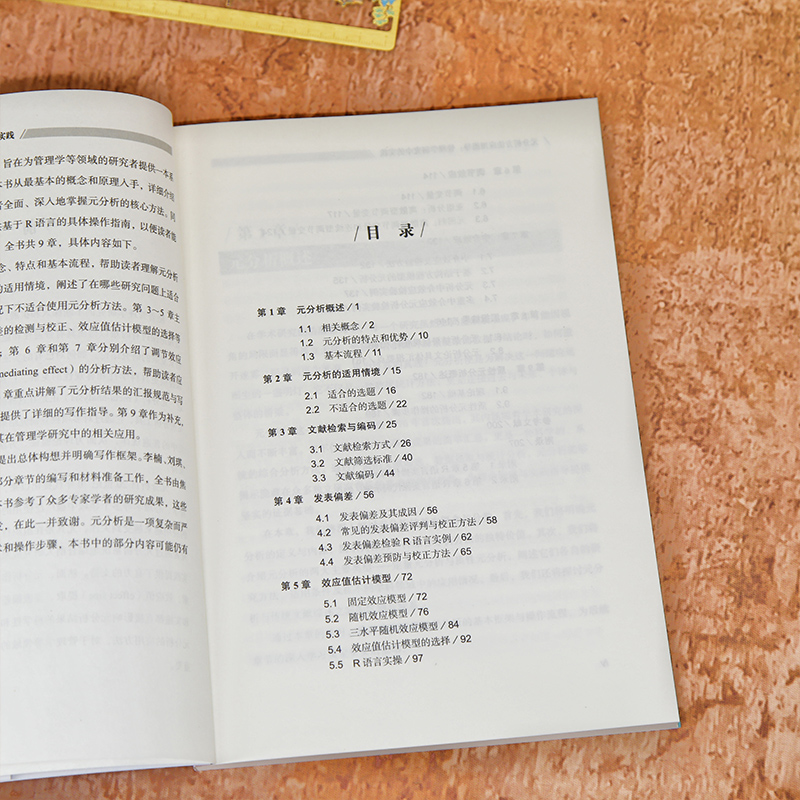 实践
旨在为管理学等领域的研究者提供一本系
本书从最基本的概念和原理入手，详细介绍
者全面、深入地掌握元分析的核心方法。同
供基于 R 语言的具体操作指南，以便读者能
全书共 9 章，具体内容如下。
念、特点和基本流程，帮助读者理解元分析
的适用情境，阐述了在哪些研究问题上适合
况下不适合使用元分析方法。第 3~5 章主
差的检测与校正、效应值估计模型的选择等
；第 6 章和第 7 章分别介绍了调节效应
mediating effect）的分析方法，帮助读者应
章重点讲解了元分析结果的汇报规范与写
提供了详细的写作指导。第 9 章作为补充，
其在管理学研究中的相关应用。
提出总体构想并明确写作框架。李楠、刘琪、
部分章节的编写和材料准备工作，全书由焦
本书参考了众多专家学者的研究成果，这些
发，在此一并致谢。元分析是一项复杂而严
术和操作步骤，本书中的部分内容可能仍有
目 录
第 1 章 元分析概述 / 1
1.1 相关概念 / 2
1.2 元分析的特点和优势 / 10
1.3 基本流程 / 11
第 2 章 元分析的适用情境 / 15
2.1 适合的选题 / 16
2.2 不适合的选题 / 22
第 3 章 文献检索与编码 / 25
3.1 文献检索方式 / 26
3.2 文献筛选标准 / 40
3.3 文献编码 / 44
第 4 章 发表偏差 / 56
4.1 发表偏差及其成因 / 56
4.2 常见的发表偏差评判与校正方法 / 58
4.3 发表偏差检验 R 语言实例 / 62
4.4 发表偏差预防与校正方法 / 65
第 5 章 效应值估计模型 / 72
5.1 固定效应模型 / 72
5.2 随机效应模型 / 76
5.3 三水平随机效应模型 / 84
5.4 效应值估计模型的选择 / 92
5.5 R 语言实操 / 97